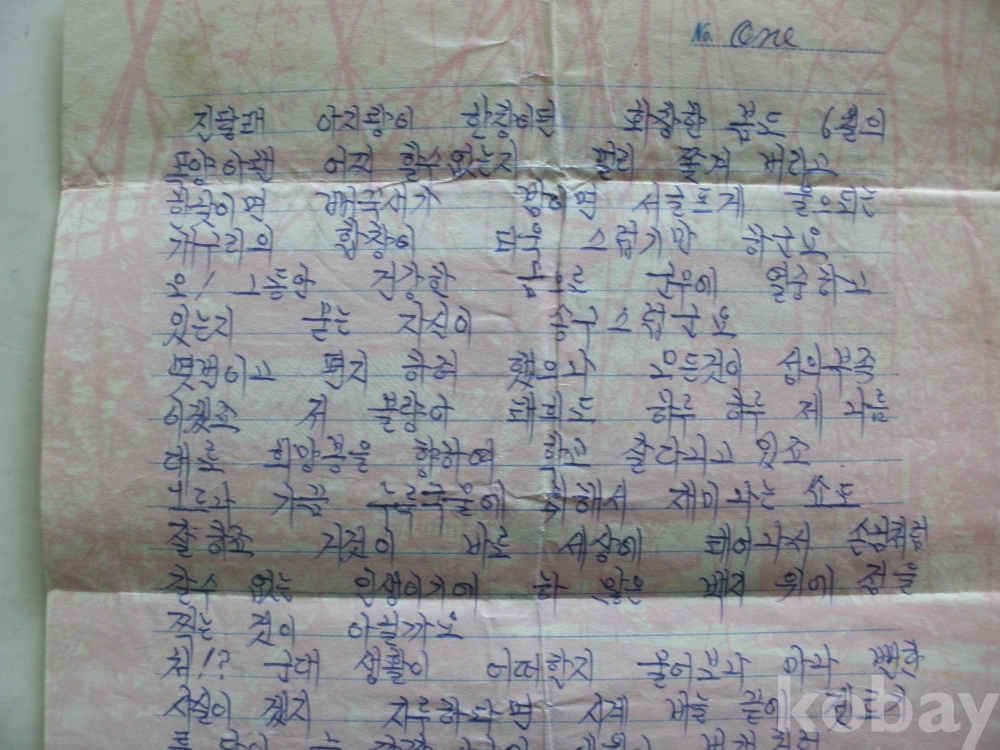 No. One
진달래 아지랑이 한창이든 화창한 봄도 6월의
태양아래 어찌 할수 있는지 멀리 쫓겨 버리고
한낮이면 뻐꾹새가 밤이면 서글프게 울으되는
개구리의 합창이 다운 스럽기만 하군요
오! 그동안 건강한 몸으로 군무에 열중하고
있는지 묻는 자신이 송구스럽군요
몇번이고 편지 하려 했으나 모든것이 성의부족
이겠죠 저 불량아 태희도 하루 하루 제 나름
대로 희망봉을 향하여 하고 달리고 있소
그러나 가끔 누룩국물에 취해서 개이나는 쇼도
잘하죠 이것이 바로 세상에 태어나서 손색처럼
갈수 없는 인생이기에 하얀은 백지 위에 점을
찍는 것이 아닐까요
최!? 군대 생활이 어떠한지 물어보나 마나 뻔한
사실이 겠지 지루하다면 시계 바늘 끝에
kobay